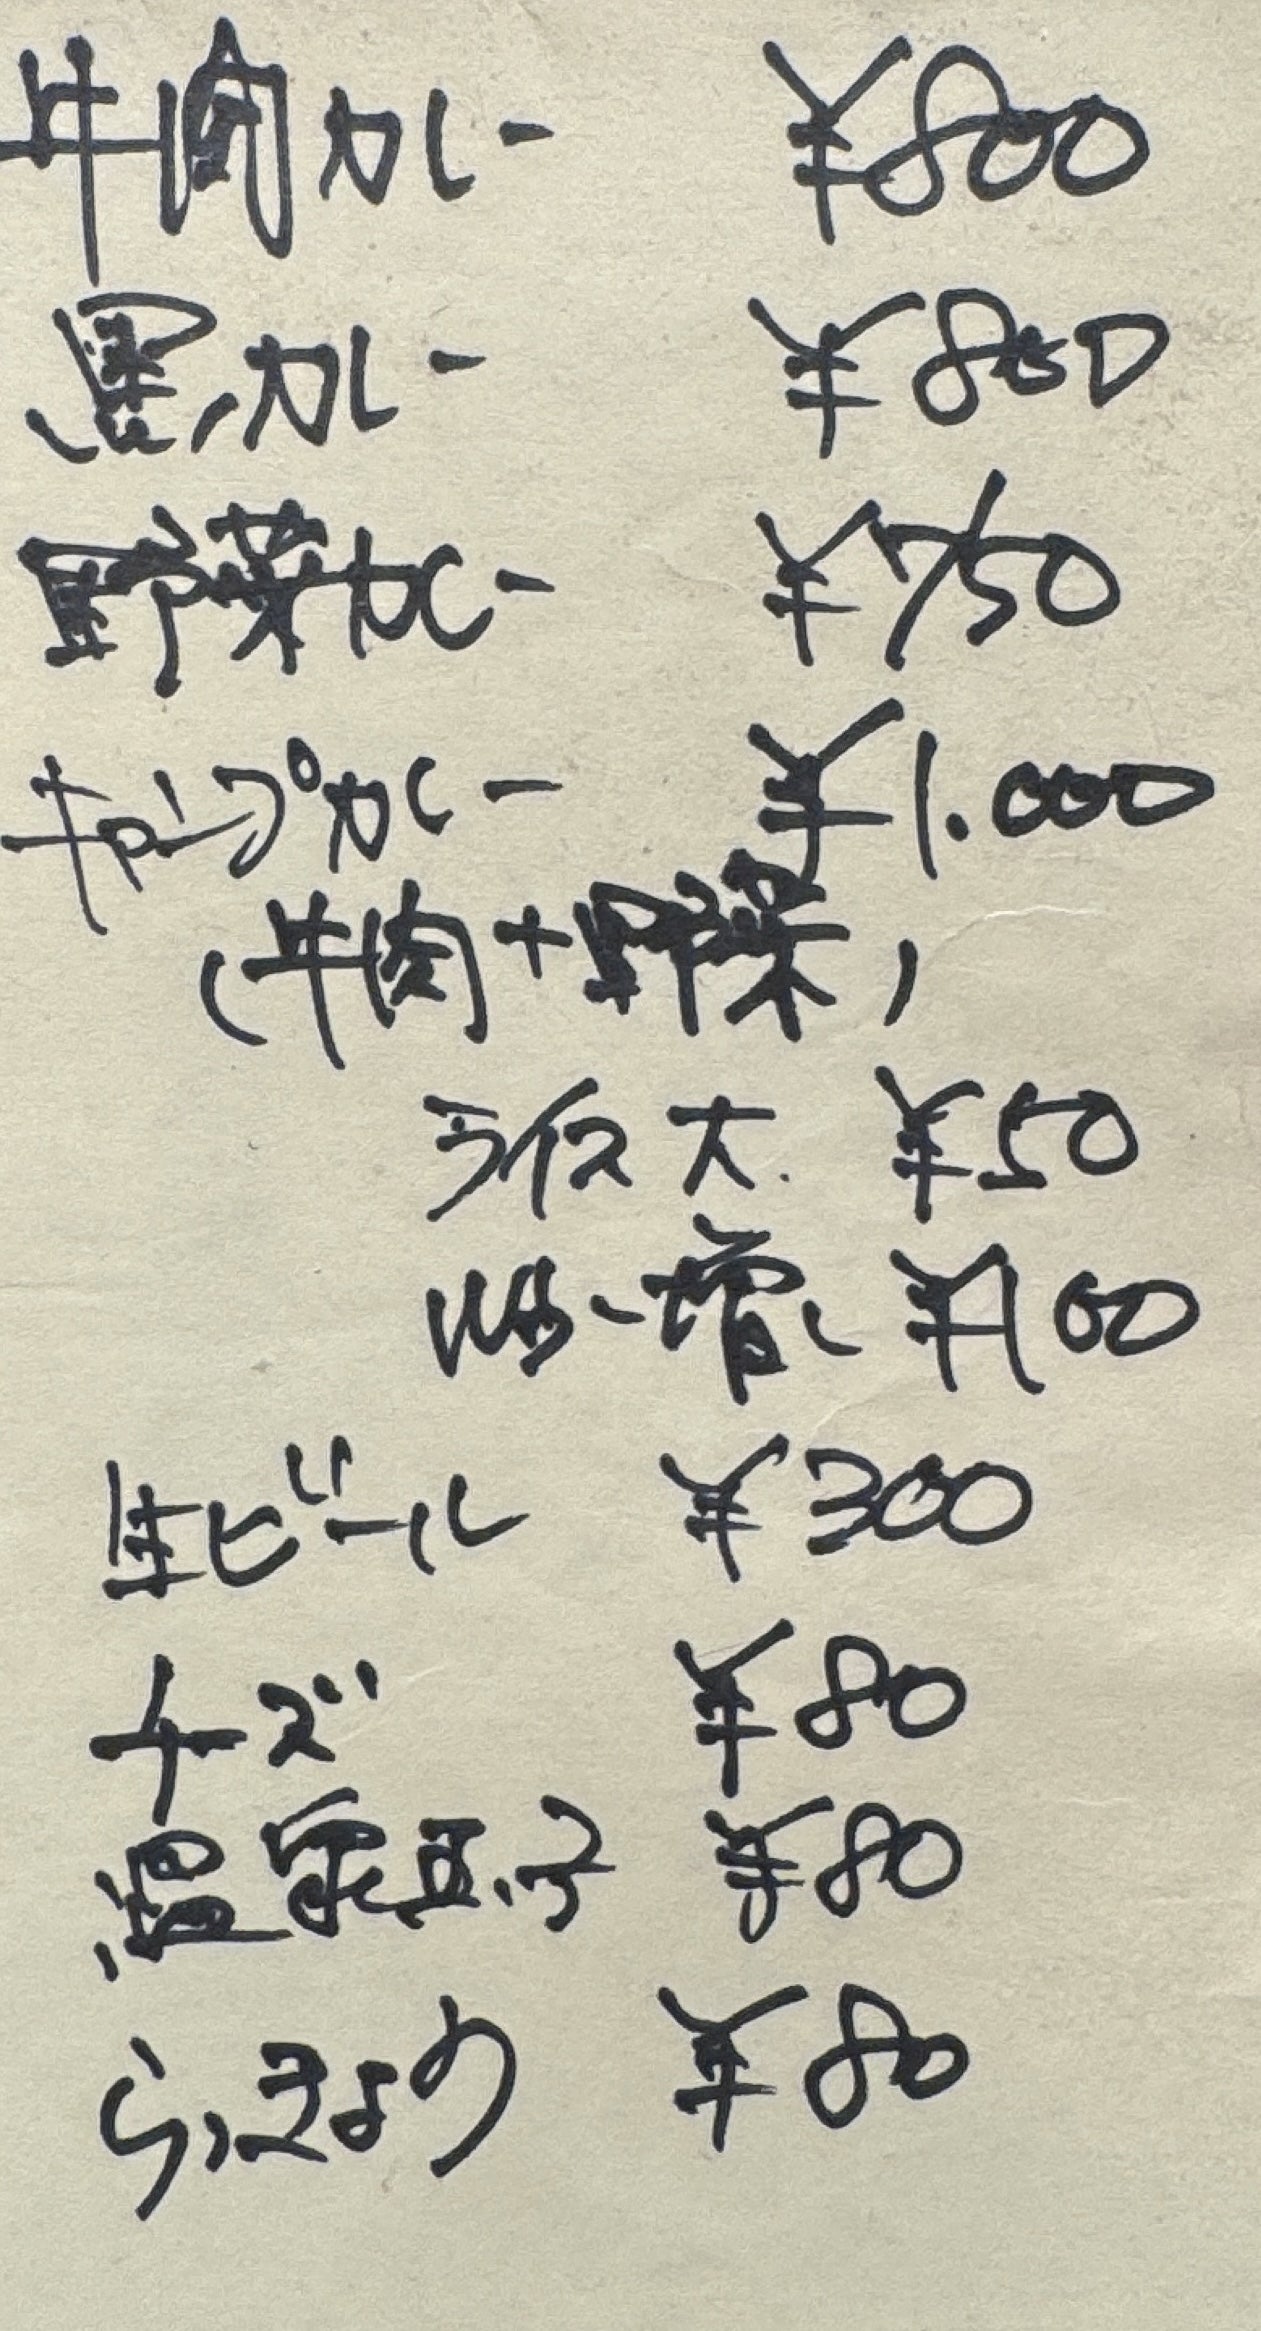 牛肉カレー ¥800
黒カレー ¥800
野菜カレー ¥750
キャンプカレー ¥1.000
(牛肉+野菜)
ライス大 ¥50
増し ¥100
生ビール ¥300
チーズ ¥80
温泉玉子 ¥80
らっきょう ¥80